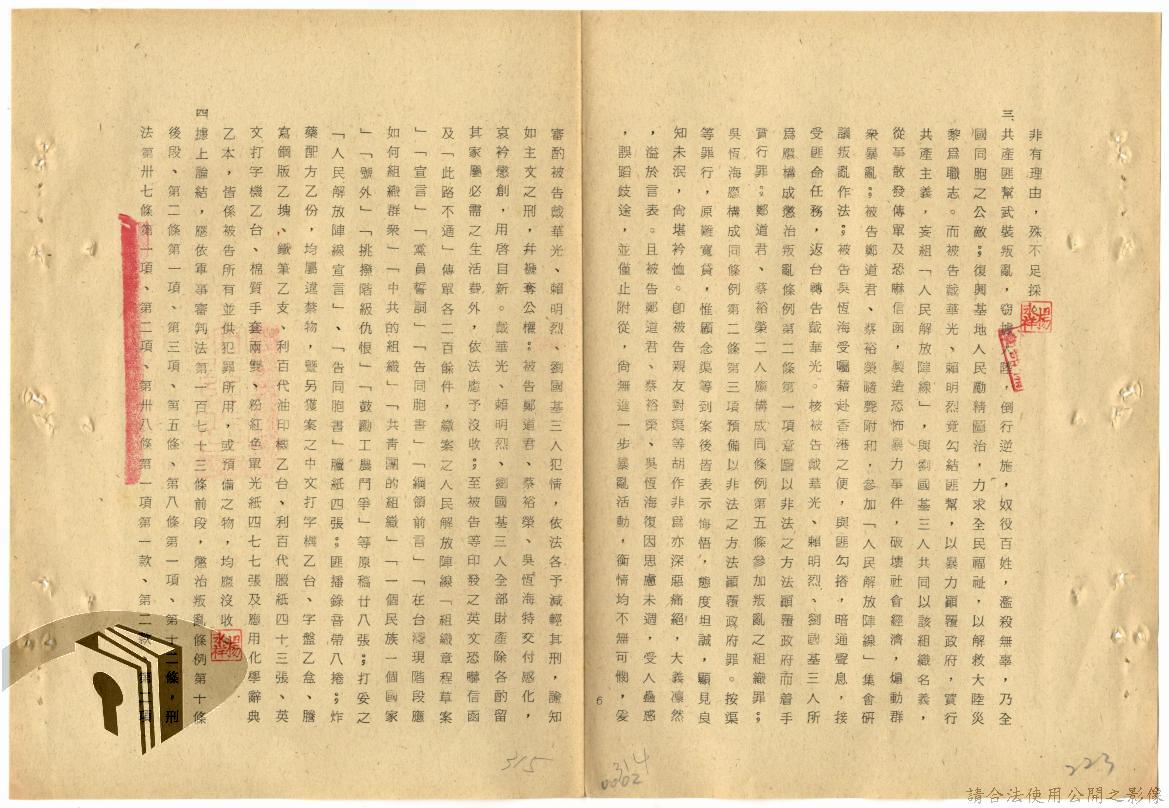 非有理由，殊不足採。
三、共產匪幫武裝叛亂，竊據大陸，倒行逆施，奴役百姓，濫殺無辜，乃全
國同胞之公敵；復興基地人民勵精圖治，力求全民福祉，以解救大陸災
黎爲職志。而被告戴華光、賴明烈竟勾結匪幫，以暴力顚覆政府，實行
共產主義，妄組「人民解放陣線」，與劉國基三人共同以該組織名義，
從事散發傳單及恐嚇信函，製造恐怖暴力事件，破壞社會經濟，煽動群
衆暴亂；被告鄭道君、蔡裕榮隨聲附和，參加「人民解放陣線」集會研
議叛亂作法；被告吳恆海受囑藉赴香港之便，與匪勾搭，暗通聲息，接
受匪命任務，返台轉告戴華光。核被告戴華光、賴明烈、劉國基三人所
爲應構成懲治叛亂條例第二條第一項意圖以非法之方法顚覆政府而着手
實行罪；鄭道君、蔡裕榮二人應構成同條例第五條參加叛亂之組織罪；
吳恆海應構成同條例第二條第三項預備以非法之方法顚覆政府罪。按渠
等罪行，原難寬貸，惟顧念渠等到案後皆表示悔悟，態度坦誠，顯見良
知未泯，尙堪衿恤。卽被告親友對渠等胡作非爲亦深惡痛絕，大義凜然
，溢於言表。且被告鄭道君、蔡裕榮、吳恆海復因思慮未週，受人蠱惑
，誤蹈歧途，並僅止附從，尙無進一步暴亂活動，衡情均不無可憫，爰
6
審酌被告戴華光、賴明烈、劉國基三人犯情，依法各予減輕其刑，諭知
如主文之刑，幷褫奪公權；被告鄭道君、蔡裕榮、吳恆海特交付感化，
哀衿懲創，用啓自新。戴華光、賴明烈、劉國基三人全部財產除各酌留
其家屬必需之生活費外，依法應予沒收；至被告等印發之英文恐嚇信函
及「此路不通」傳單各二百餘件，繳案之人民解放陣線「組織章程草案
」「宣言」「黨員誓詞」「告同胞書」「綱領前言」「在台灣現階段應
如何組織群衆」「中共的組織」「共靑團的組織」「一個民族一個國家
」「號外」「挑撥階級仇恨」「鼓動工農鬥爭」等原稿廿八張；打妥之
「人民解放陣線宣言」、「告同胞書」臘紙四張；匪播錄音帶八捲；炸
藥配方乙份，均屬違禁物，曁另獲案之中文打字機乙台、字盤乙盒、謄
寫鋼版乙塊、鐵筆乙支、利百代油印機乙台、利百代臘紙四十三張、英
文打字機乙台、棉質手套兩雙、粉紅色單光紙四七七張及應用化學辭典
乙本，皆係被告所有並供犯罪所用，或預備之物，均應沒收。
四、據上論結，應依軍事審判法第一百七十三條前段，懲治叛亂條例第十條
後段、第二條第一項、第三項、第五條、第八條第一項、第十二條，刑
法第卅七條第一項、第二項、第卅八條第一項第一款、第二款、第二項
315
314
0002
223
請合法使用公開之影像